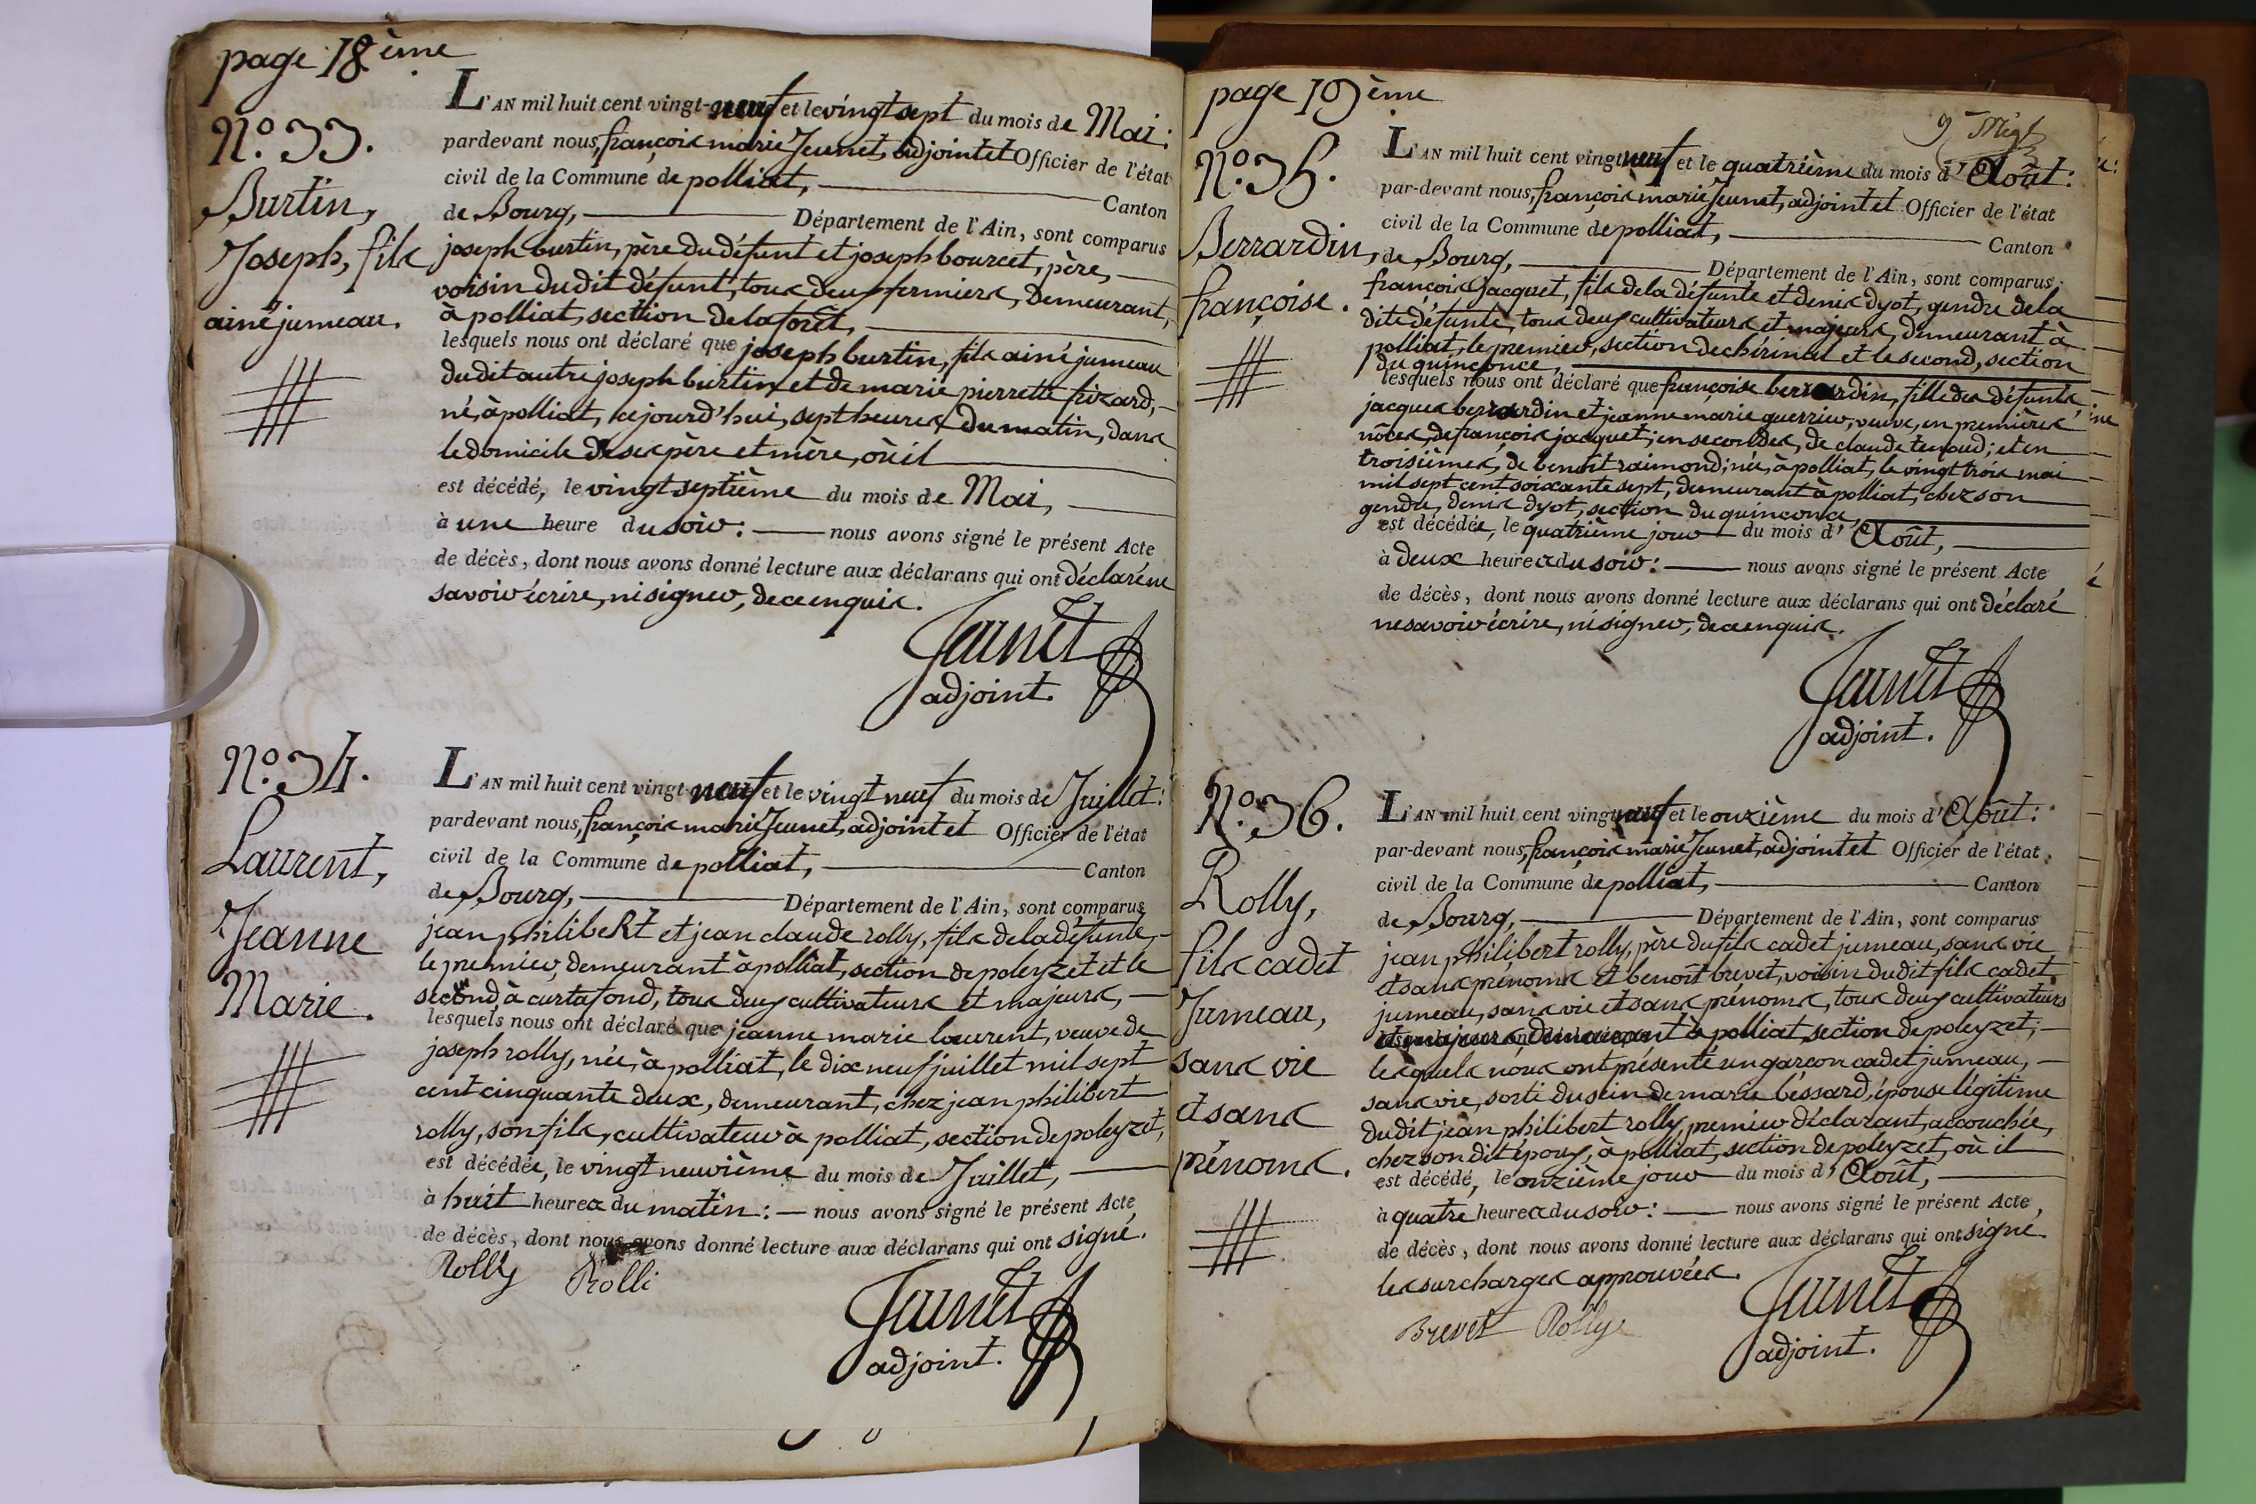 page 18ème
N.º 33.
Burtin,
Joseph, fils
ainé jumeau.
L'AN mil huit cent vingt-neuf et le vingt sept du mois de Mai:
pardevant nous, françois marie Jeunet, adjoint et Officier de l'état
civil de la Commune de polliat, Canton
de Bourg, Département de l'Ain, sont comparus
joseph burtin, père du défunt et joseph bourcet, père,
voisin dudit défunt, tous deux fermiers, demeurant,
à polliat, section de la forêt,
lesquels nous ont déclaré que joseph burtin, fils ainé jumeau
dudit autre joseph burtin et de marie pierrette frizard,
né, à polliat, cejourd'hui, sept heures du matin, dans
le domicile de ses père et mère, où il
est décédé, le vingt septième du mois de Mai,
à une heure du soir: nous avons signé le présent Acte
de décès, dont nous avons donné lecture aux déclarans qui ont déclaré ne
savoir écrire, ni signer, de ce enquis.
Jeunet
adjoint.
N.º 34.
Laurent,
Jeanne
Marie.
L'AN mil huit cent vingt-neuf et le vingt neuf du mois de Juillet:
pardevant nous, françois marie Jeunet, adjoint et Officier de l'état
civil de la Commune de polliat, Canton
de Bourg, Département de l'Ain, sont comparus
jean philibeRt et jean claude rolly, fils de la défunte,
le premier, demeurant à polliat, section de poleyzet et le
second, à curtafond, tous deux cultivateurs et majeurs,
lesquels nous ont déclaré que jeanne marie laurent, veuve de
joseph rolly, née, à polliat, le dix neuf juillet mil sept
cent cinquante deux, demeurant, chez jean philibert
rolly, son fils, cultivateur à polliat, section de poleyzet,
est décédée, le vingt neuvième du mois de Juillet,
à huit heures du matin: nous avons signé le présent Acte
de décès, dont nous avons donné lecture aux déclarans qui ont signé.
Rolly Rolli
Jeunet
adjoint.
page 19ème
N.º 35.
Berrardin,
françoise.
L'AN mil huit cent vingt neuf et le quatrième du mois d'Août:
par-devant nous, françois marie Jeunet, adjoint et Officier de l'état
civil de la Commune de polliat, Canton
de Bourg, Département de l'Ain, sont comparus
françois Jacquet, fils de la défunte et denis dyot, gendre de la
dite défunte, tous deux cultivateurs et majeurs, demeurant à
polliat, le premier, section de chérinal et le second, section
du quinconce,
lesquels nous ont déclaré que françoise berrardin, fille des défunts,
jacques berrardin et jeanne marie guerrier, veuve, en premières
nôces, de françois jacquet; en secondes, de claude tenoud; et en
troisièmes, de benoît raimond; née, à polliat, le vingt trois mai
mil sept cent soixante sept, demeurant à polliat, chez son
gendre, denis dyot, section du quinconce,
est décédée, le quatrième jour du mois d'Août,
à deux heures du soir: nous avons signé le présent Acte
de décès, dont nous avons donné lecture aux déclarans qui ont déclaré
ne savoir écrire, ni signer, de ce enquis.
Jeunet
adjoint.
N.º 36.
Rolly,
fils cadet
Jumeau,
sans vie
et sans
prénoms.
L'AN mil huit cent vingt neuf et le onzième du mois d'Août:
par-devant nous, françois marie Jeunet, adjoint et Officier de l'état
civil de la Commune de polliat, Canton
de Bourg, Département de l'Ain, sont comparus
jean philibert rolly, père du fils cadet jumeau, sans vie
et sans prénoms et benoît brevet, voisin dudit fils cadet
jumeau, sans vie et sans prénoms, tous deux cultivateurs
et majeurs, demeurant à polliat, section de poleyzet;
lesquels nous ont présenté un garçon cadet jumeau,
sans vie, sorti du sein de marie bessard, épouse légitime
dudit jean philibert rolly, premier déclarant, accouchée,
chez son dit époux, à polliat, section de poleyzet, où il
est décédé, le onzième jour du mois d'Août,
à quatre heures du soir: nous avons signé le présent Acte
de décès, dont nous avons donné lecture aux déclarans qui ont signé.
les surcharges approuvées.
Brevet Rolly
Jeunet
adjoint.